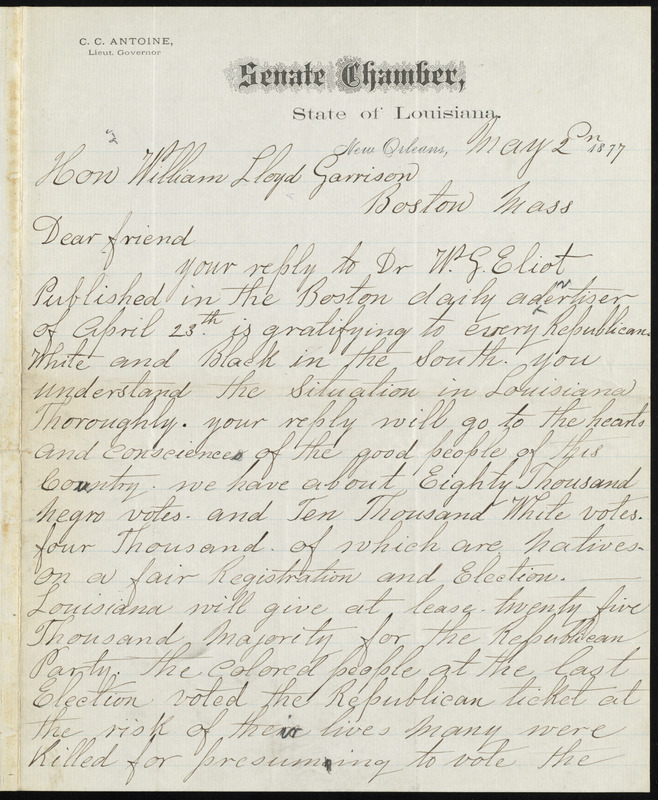 C. C. ANTOINE,
Lieut. Governor
Senate Chamber,
State of Louisiana.
New Orleans, May 2n 1877
Hon William Lloyd Garrison
Boston Mass
Dear friend
your reply to Dr W. G. Eliot
Published in the Boston daily advertiser
of April 23th is gratifying to every Republican.
White and Black in the South. you
understand the Situation in Louisiana
Thoroughly. your reply will go to the hearts
and consciences of the good people of this
Country. we have about Eighty Thousand
negro votes. and Ten Thousand White votes.
four Thousand. of which are natives.
on a fair Registration and Election.
Louisiana will give at lease twenty five
Thousand majority for the Republican
Party. the colored people at the last
Election voted the Republican ticket at
the risk of their lives many were
Killed for presuming to vote the